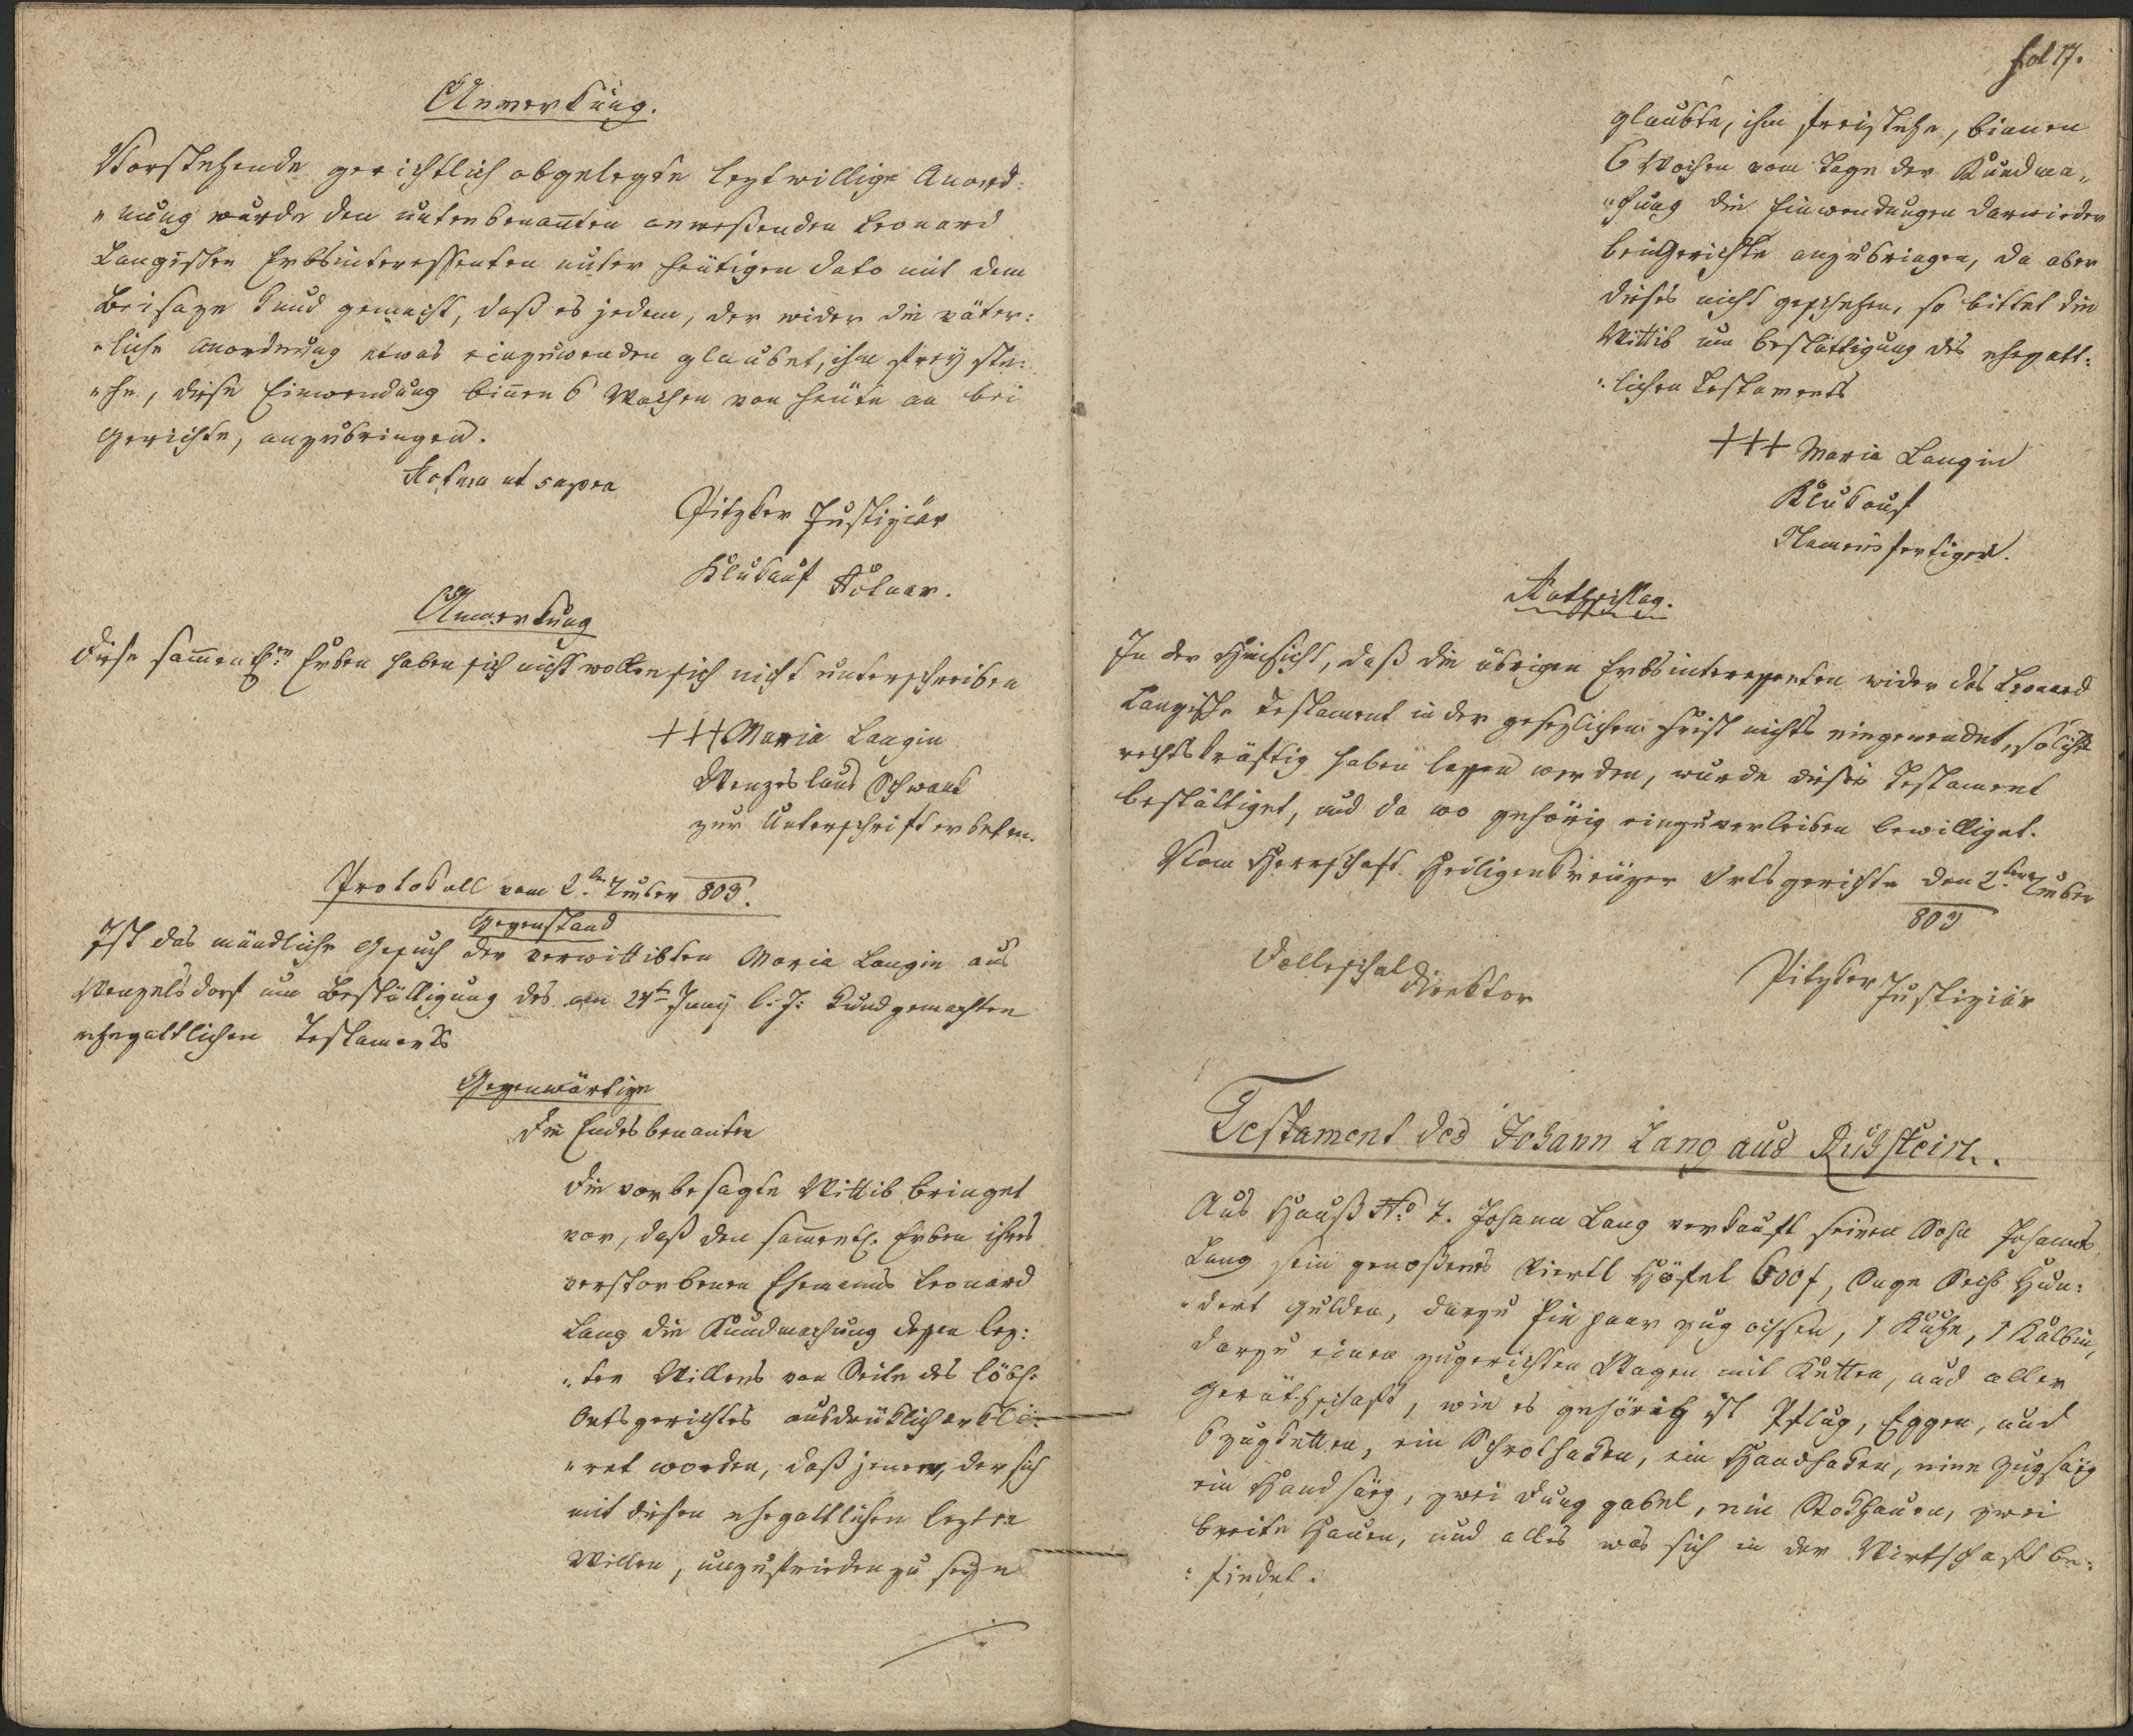 Anmerkung.
Vorstehende gerichtlich abgelegte leztwillige Anord:
"nung wurde den untenbenan̄ten anweßenden Leonard
Langischen Erbsinteressenten unter heutigen dato mit dem
Beisaze kund gemacht, daß es jedem, der wider die väter:
"liche Anordnung etwas einzuwenden glaubet, ihm frey ste:
"he, diese Einwendung bin̄en 6 Wochen von heute an bei
Gerichte, anzubringen.
Actum ut supra
Pitzker Justiziär
Klukauf Actuar.
Anmerkung
diese sam̄entl:n Erben haben sich nicht wollen sich nicht unterschreiben
+++ Maria Langin
Wenzeslaus Schwank
zur Unterschrift erbeten.
Protokoll vom 2ten 7mber 803.
Gegenstand
Ist das mündliche Gesuch der verwittibten Maria Langin aus
Wenzelsdorf um Bestättigung des am 24t Juny l: J: kundgemachten
ehegattlichen Testaments
Gegenwärtige
die Endesbenanten
die vorbesagte Wittib bringet
vor, daß den sam̄entl. Erben ihres
verstorbenen Ehemanns Leonard
Lang die Kundmachung dessen lez:
"ten Willens von Seite des löbl:
Ortsgerichtes ausdrüklich erklä:
"ret worden, daß jener, der sich
mit diesen ehegattlichen lezten
Willen, unzufrieden zu seyn
fol 17.
glaubte, ihm freistehe, binnen
6 Wochen vom Tage der Kundma„
"chung die Einwendungen darwieder
bei Gerichte anzubringen, da aber
dieses nicht geschehen, so bittet die
Wittib um Bestättigung des ehegatt:
"lichen Testaments
+++ Maria Langin
Klukauf
Namensfertiger.
Rathschlag.
In der Hinsicht, daß die übrigen Erbsinteressenten wider das Leonard
Langische Testament in der gesezlichen Frist nichts eingewendet, solches
rechtskräftig haben lassen werden, wurde dieses Testament
bestättiget, und da wo gehörig einzuverleiben bewilliget.
Vom Herrschaft Heiligenkreuzer Ortsgerichte den 2ten 7mber
803
Direktor
Pitzker Justiziär
Testament des Johann Lang aus Ruhstein.
Aus Hauß No 7. Johann Lang verkauft seinen Sohn Johannes
Lang sein genoßenes Viertl Höfel 600 f, Sage Sechs Hun:
"dert Gulden, darzu Ein paar zug ochsen, 1 Kuhe, 1 Kalbin,
darzu einen zugerichten Wagen mit Ketten, und aller
Geräthschaft, wie es gehörig ist Pflug, Eggen, und
6 zugketten, ein Schrothaken, ein Handhaken, eine Zugsäg
ein Handsäg, zwei Dung gabel, ein Stokhauen, zwei
breite Hauen, und alles was sich in der Wirtschaft be:
: findet.